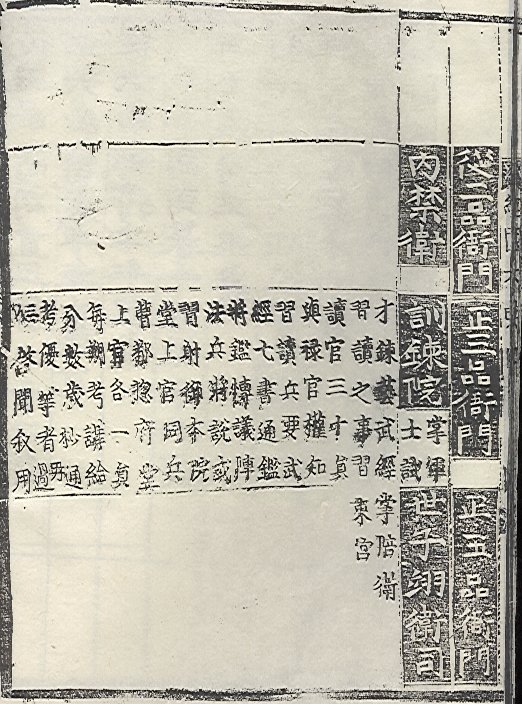 從二品衙門
內禁衛
正三品衙門
訓鍊院
掌軍
士試
才鍊藝武經
習讀之事習
讀官三十員
與祿官權知
習讀兵要武
經七書通鑑
將鑑博議陣
法兵將說或
習射御本院
堂上官同兵
曹都摠府堂
上官各一員
每朔考講給
分數歲抄通
考優等者毋過
三啓聞敍用
正五品衙門
世子翊衛司
掌陪衛
東宮